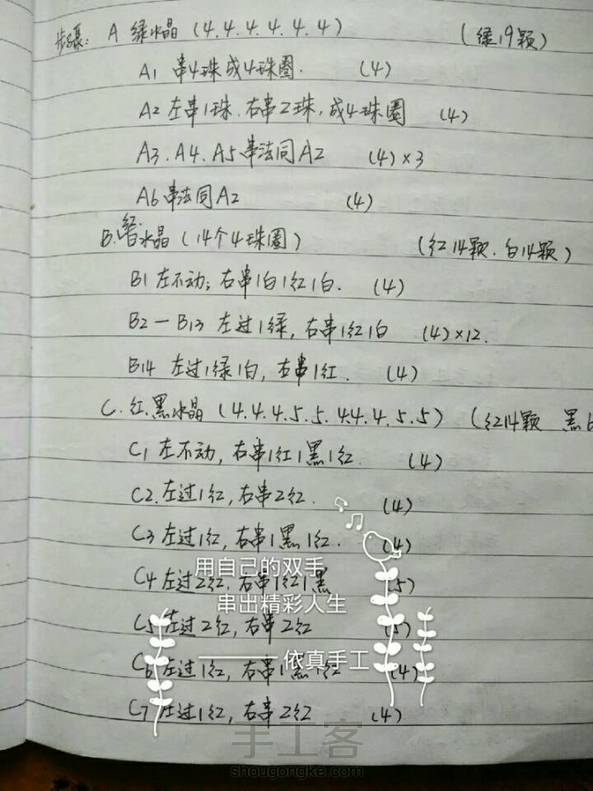 步骤: A 绿水晶 (4.4.4.4.4.4) (绿19颗)
A1 串4珠成4珠圈. (4)
A2 左串1珠.右串2珠.成4珠圈 (4)
A3.A4.A5串法同A2 (4)×3
A6串法同A2 (4)
B.红白水晶 (14个4珠圈) (红14颗.白14颗)
B1 左不动;右串1白1红1白. (4)
B2—B13 左过1绿,右串1红1白 (4)×12.
B14 左过1绿1白,右串1红. (4)
C.红.黑水晶 (4.4.4.5.5.4.4.4.5.5) (红14颗 黑6
C1 左不动,右串1红1黑1红. (4)
C2.左过1红,右串2红. (4)
C3 左过1红,右串1黑1红. (4)
用自己的双手
C4 左过2红.右串1红1黑 (5)
串出精彩人生
C5 左过2红,右串2红 (5)
依真手工
C6 左过1红,右串1黑1红 (4)
C7 左过1红,右串2红 (4)
手工客
shougongke.com